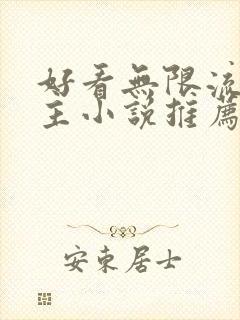 好看無限流
主小說推薦
安東居士